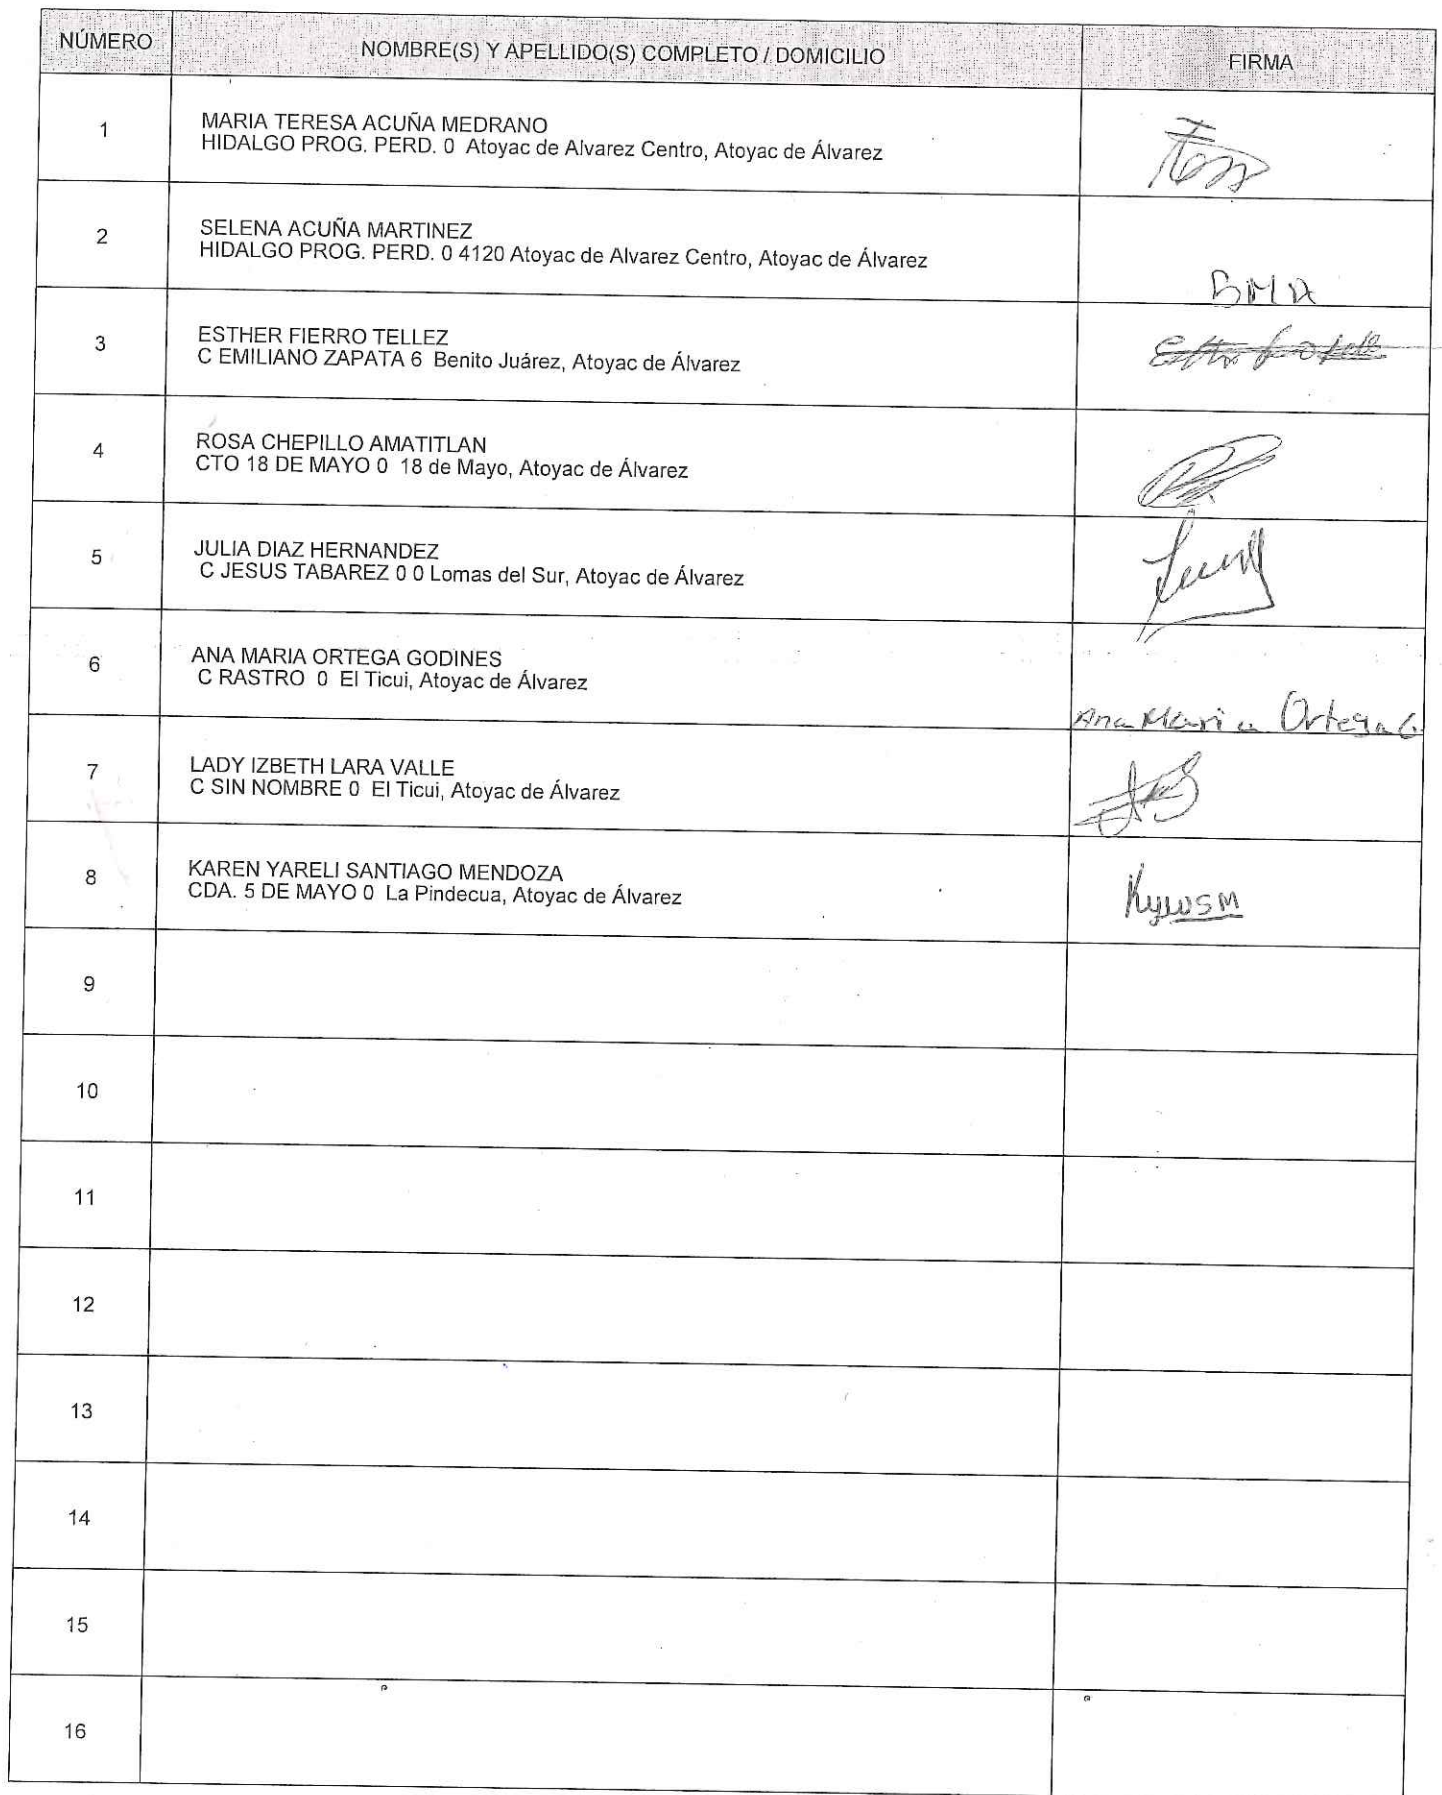 NÚMERO NOMBRE(S) Y APELLIDO(S) COMPLETO / DOMICILIO FIRMA
1 MARIA TERESA ACUÑA MEDRANO
HIDALGO PROG. PERD. 0 Atoyac de Alvarez Centro, Atoyac de Álvarez
2 SELENA ACUÑA MARTINEZ
HIDALGO PROG. PERD. 0 4120 Atoyac de Alvarez Centro, Atoyac de Álvarez
3 ESTHER FIERRO TELLEZ
C EMILIANO ZAPATA 6 Benito Juárez, Atoyac de Álvarez
4 ROSA CHEPILLO AMATITLAN
CTO 18 DE MAYO 0 18 de Mayo, Atoyac de Álvarez
5 JULIA DIAZ HERNANDEZ
C JESUS TABAREZ 0 0 Lomas del Sur, Atoyac de Álvarez
6 ANA MARIA ORTEGA GODINES
C RASTRO 0 El Ticui, Atoyac de Álvarez
Ana Maria Ortega G
7 LADY IZBETH LARA VALLE
C SIN NOMBRE 0 El Ticui, Atoyac de Álvarez
8 KAREN YARELI SANTIAGO MENDOZA
CDA. 5 DE MAYO 0 La Pindecua, Atoyac de Álvarez
9
10
11
12
13
14
15
16